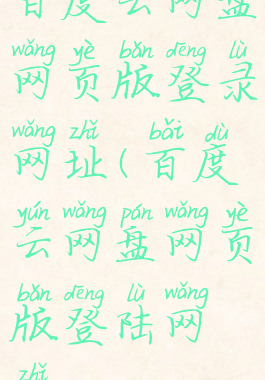 百度云网盘
wǎng yè bǎn dēng lù
网页版登录
wǎng zhǐ bǎi dù
网址(百度
yún wǎng pán wǎng yè
云网盘网页
bǎn dēng lù wǎng
版登陆网
zhǐ